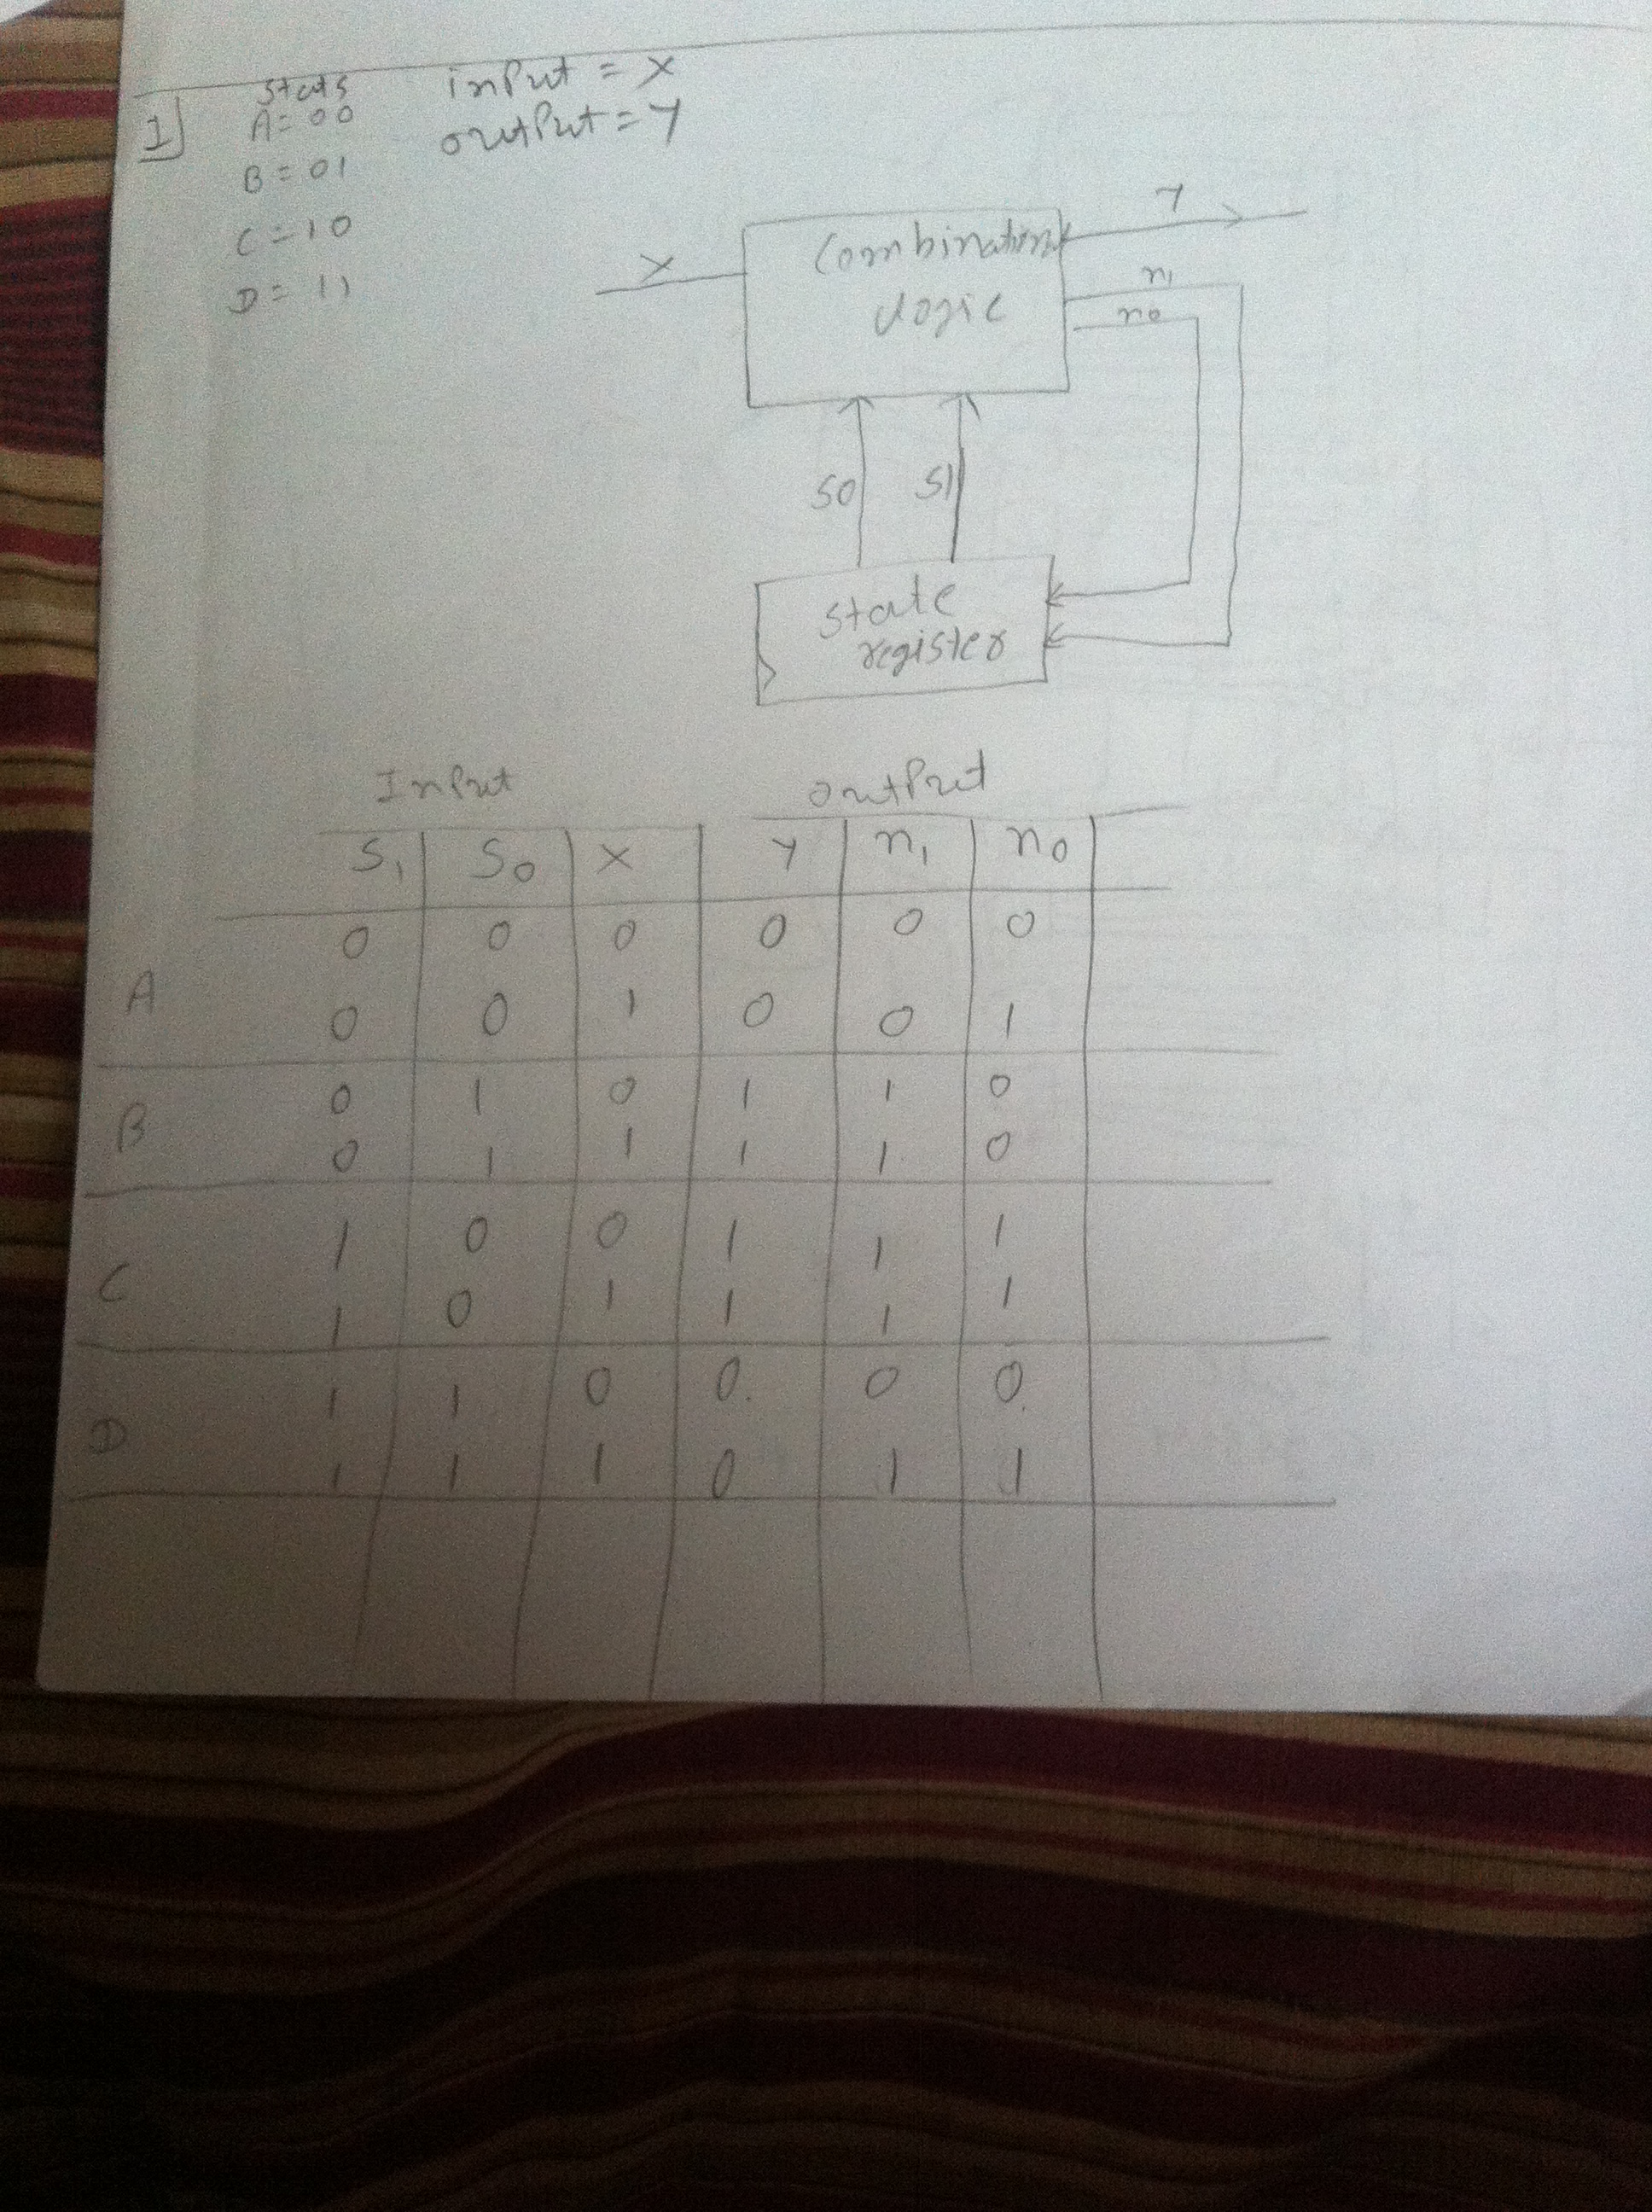 1
Stats
A = 00
B = 01
C = 10
D = 11
input = X
output = Y
X
Combination
logic
Y
n1
n0
S0 S1
State
register
Input Output
S1 S0 X Y n1 n0
A
0 0 0 0 0 0
0 0 1 0 0 1
B
0 1 0 1 1 0
0 1 1 1 1 0
C
1 0 0 1 1 1
1 0 1 1 1 1
D
1 1 0 0 0 0
1 1 1 0 1 1